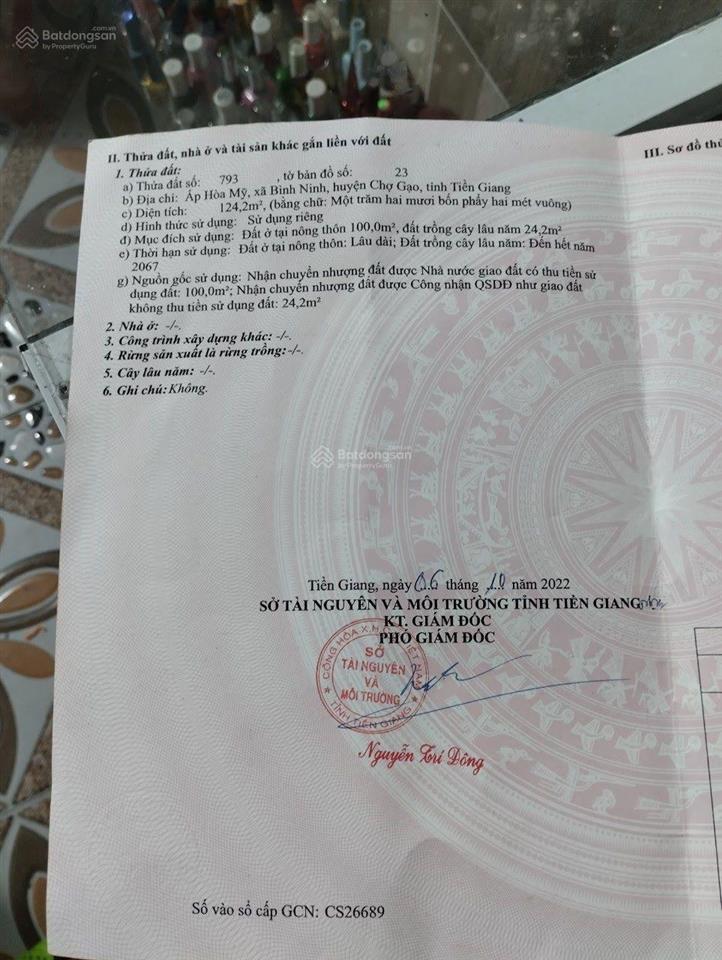 Batdongsan.com.vn
by PropertyGuru
II. Thửa đất, nhà ở và tài sản khác gắn liền với đất
III. Sơ đồ thử
1. Thửa đất:
a) Thửa đất số: 793 , tờ bản đồ số: 23
b) Địa chỉ: Ấp Hòa Mỹ, xã Bình Ninh, huyện Chợ Gạo, tỉnh Tiền Giang
c) Diện tích: 124,2m², (bằng chữ: Một trăm hai mươi bốn phẩy hai mét vuông)
d) Hình thức sử dụng: Sử dụng riêng
đ) Mục đích sử dụng: Đất ở tại nông thôn 100,0m², đất trồng cây lâu năm 24,2m²
e) Thời hạn sử dụng: Đất ở tại nông thôn: Lâu dài; Đất trồng cây lâu năm: Đến hết năm
2067
g) Nguồn gốc sử dụng: Nhận chuyển nhượng đất được Nhà nước giao đất có thu tiền sử
dụng đất: 100,0m²; Nhận chuyển nhượng đất được Công nhận QSDĐ như giao đất
không thu tiền sử dụng đất: 24,2m²
2. Nhà ở: -/-.
3. Công trình xây dựng khác: -/-.
4. Rừng sản xuất là rừng trồng:-/-.
5. Cây lâu năm: -/-.
6. Ghi chú: Không.
Batdongsan.com.vn
by PropertyGuru
Tiền Giang, ngày 06 tháng 10 năm 2022
SỞ TÀI NGUYÊN VÀ MÔI TRƯỜNG TỈNH TIỀN GIANG
KT. GIÁM ĐỐC
PHÓ GIÁM ĐỐC
CỘNG HÒA X.H.C.N VIỆT NAM
SỞ
TÀI NGUYÊN
VÀ
MÔI TRƯỜNG
TỈNH TIỀN GIANG
Nguyễn Trí Đông
Số vào sổ cấp GCN: CS26689